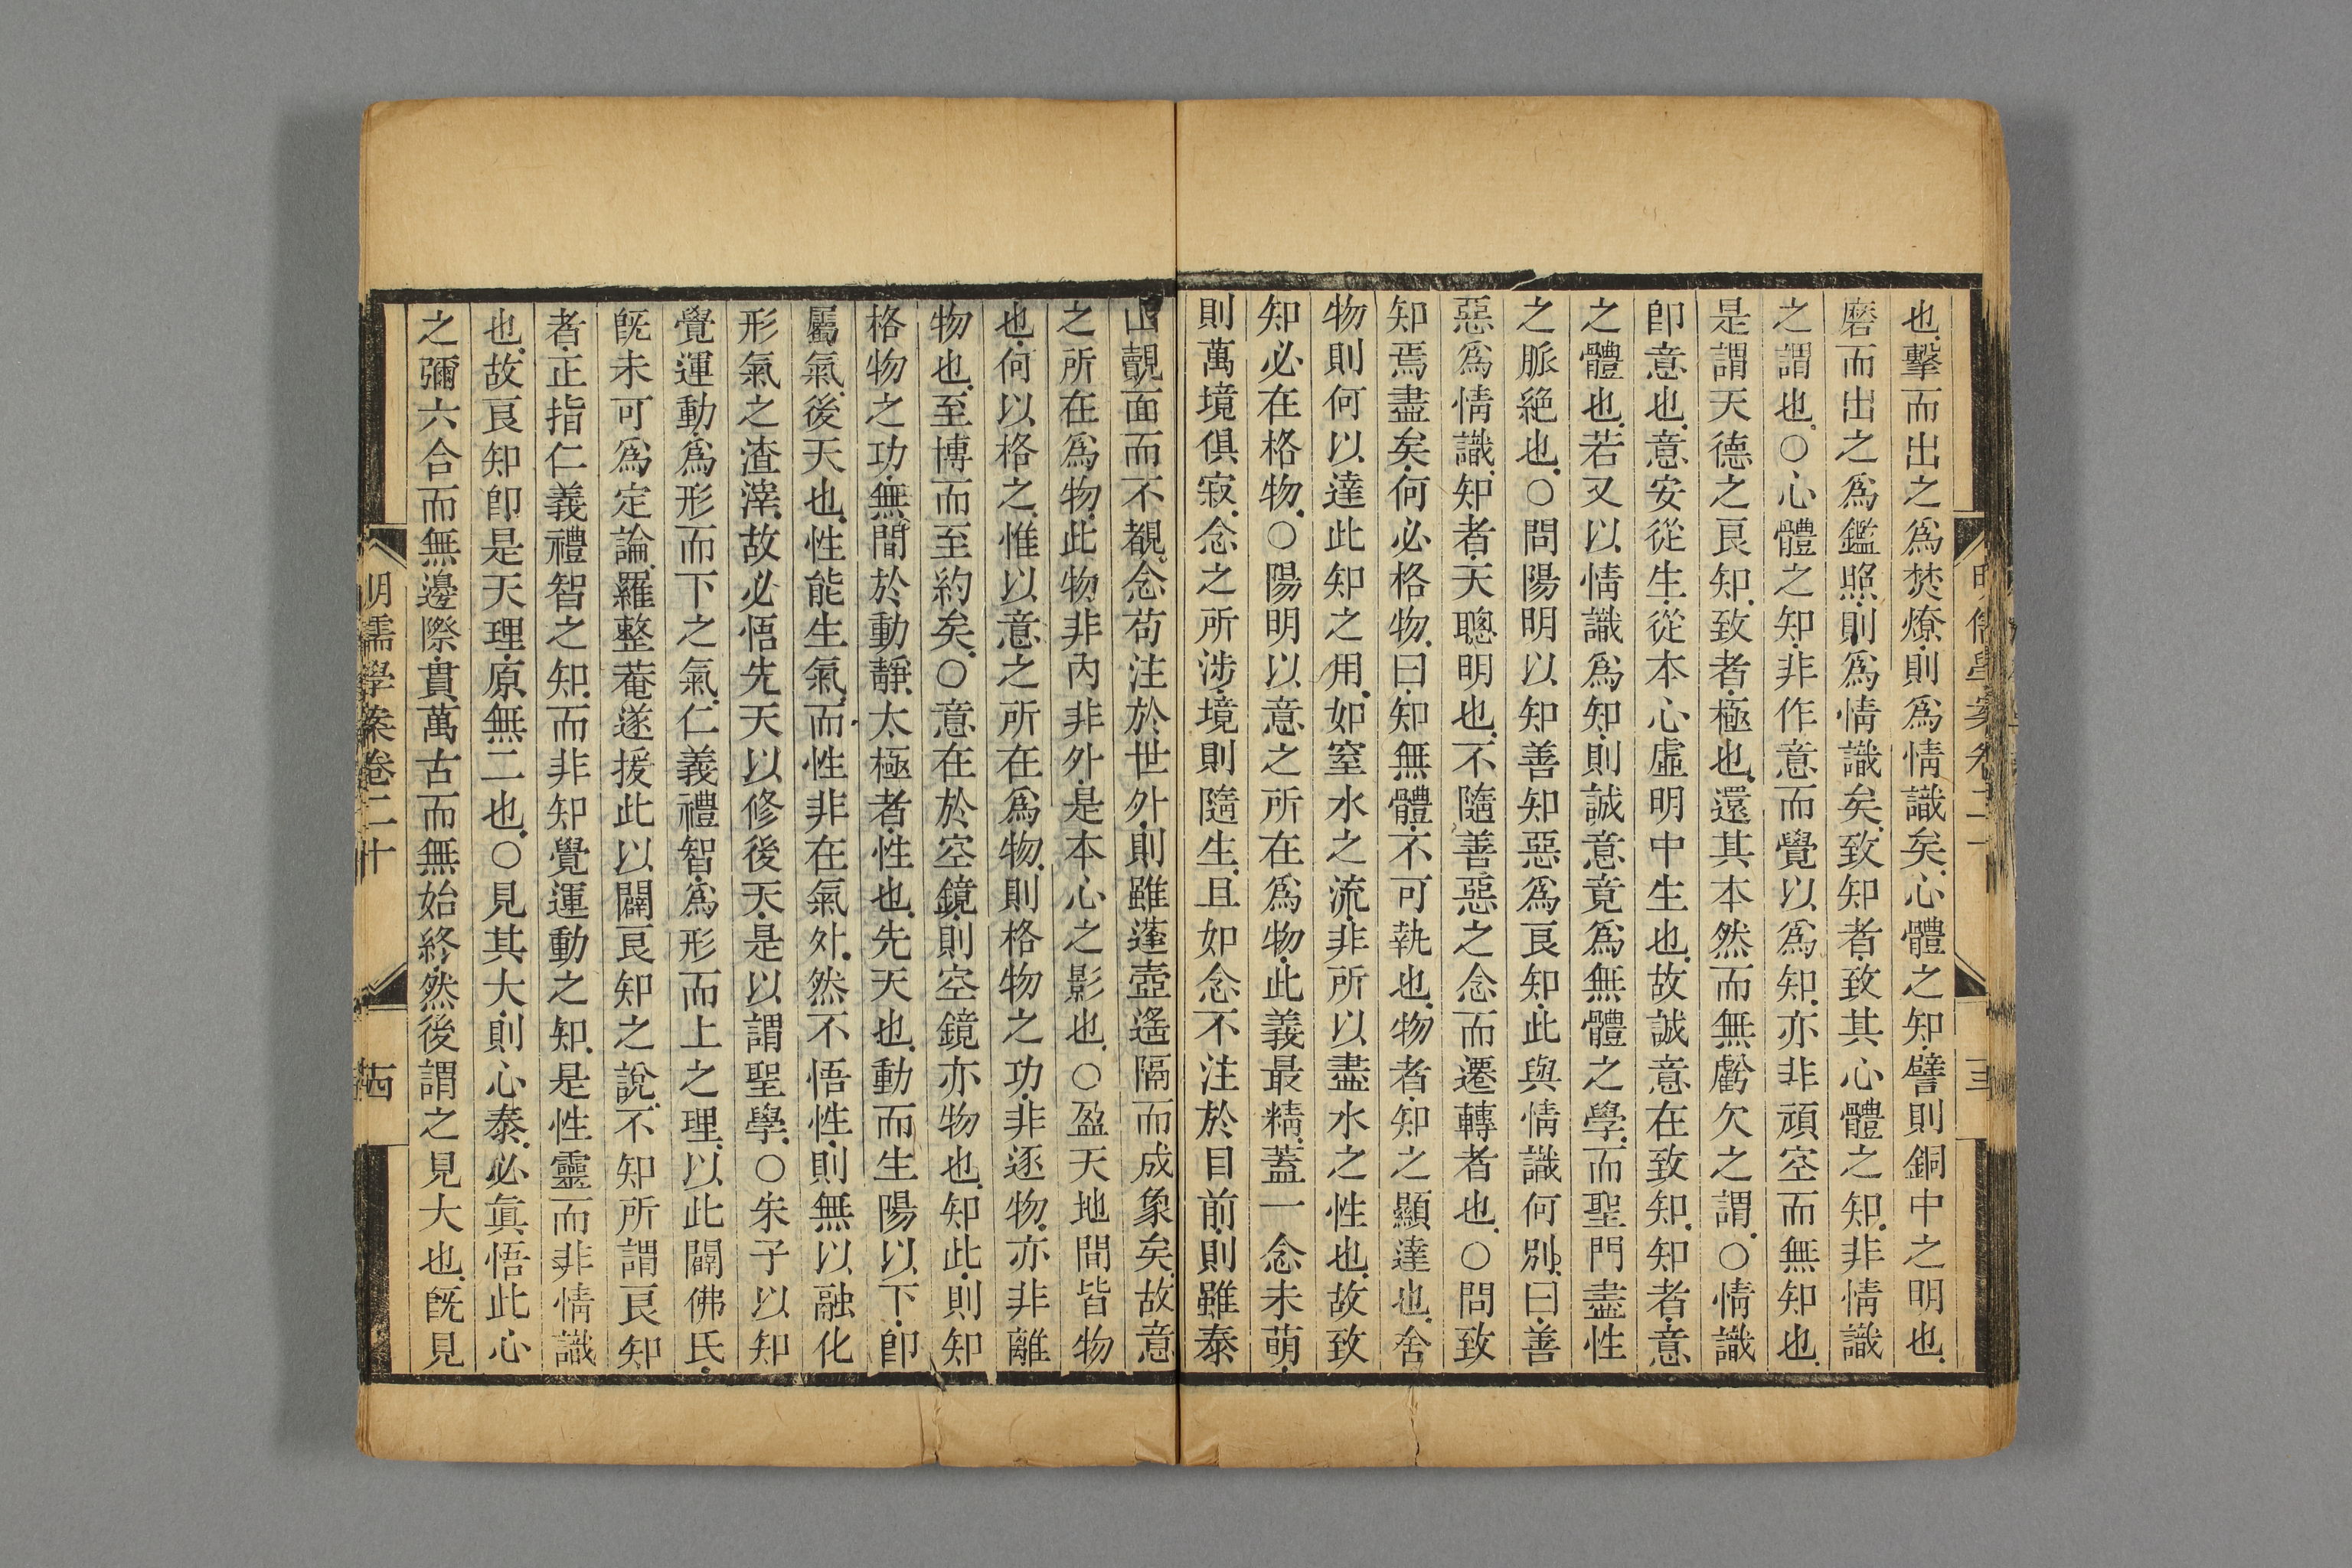 也擊而出之爲焚燎則爲情識矣心體之知譬則銅中之明也
磨而出之爲鑑照則爲情識矣致知者致其心體之知非情識
之謂也○心體之知非作意而覺以爲知亦非頑空而無知也
是謂天德之良知致者極也還其本然而無虧欠之謂○情識
卽意也意安從生從本心虛明中生也故誠意在致知知者意
之體也若又以情識爲知則誠意竟爲無體之學而聖門盡性
之脈絕也○問陽明以知善知惡爲良知此與情識何別曰善
惡爲情識知者天聰明也不隨善惡之念而遷轉者也○問致
知焉盡矣何必格物曰知無體不可執也物者知之顯達也舍
物則何以達此知之用如窒水之流非所以盡水之性也故致
知必在格物○陽明以意之所在爲物此義最精蓋一念未萌
則萬境俱寂念之所涉境則隨生且如念不注於目前則雖泰
山覿面而不覩念苟注於世外則雖蓬壺遙隔而成象矣故意
之所在爲物此物非內非外是本心之影也○盈天地間皆物
也何以格之惟以意之所在爲物則格物之功非逐物亦非離
物也至博而至約矣○意在於空鏡則空鏡亦物也知此則知
格物之功無間於動靜太極者性也先天也動而生陽以下卽
屬氣後天也性能生氣而性非在氣外然不悟性則無以融化
形氣之渣滓故必悟先天以修後天是以謂聖學○朱子以知
覺運動爲形而下之氣仁義禮智爲形而上之理以此闢佛氏
旣未可爲定論羅整菴遂援此以闢良知之說不知所謂良知
者正指仁義禮智之知而非知覺運動之知是性靈而非情識
也故良知卽是天理原無二也○見其大則心泰必眞悟此心
之彌六合而無邊際貫萬古而無始終然後謂之見大也旣見
明儒學案卷二十
西